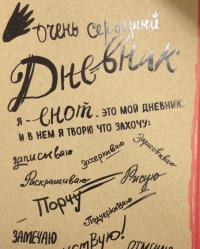 очень серьёзный
Дневник
я - енот. это мой дневник.
и в нем я творю что захочу:
записываю зачеркиваю зарисовываю
Раскрашиваю Рисую
Порчу Подчеркиваю
замечаю
отмечаю